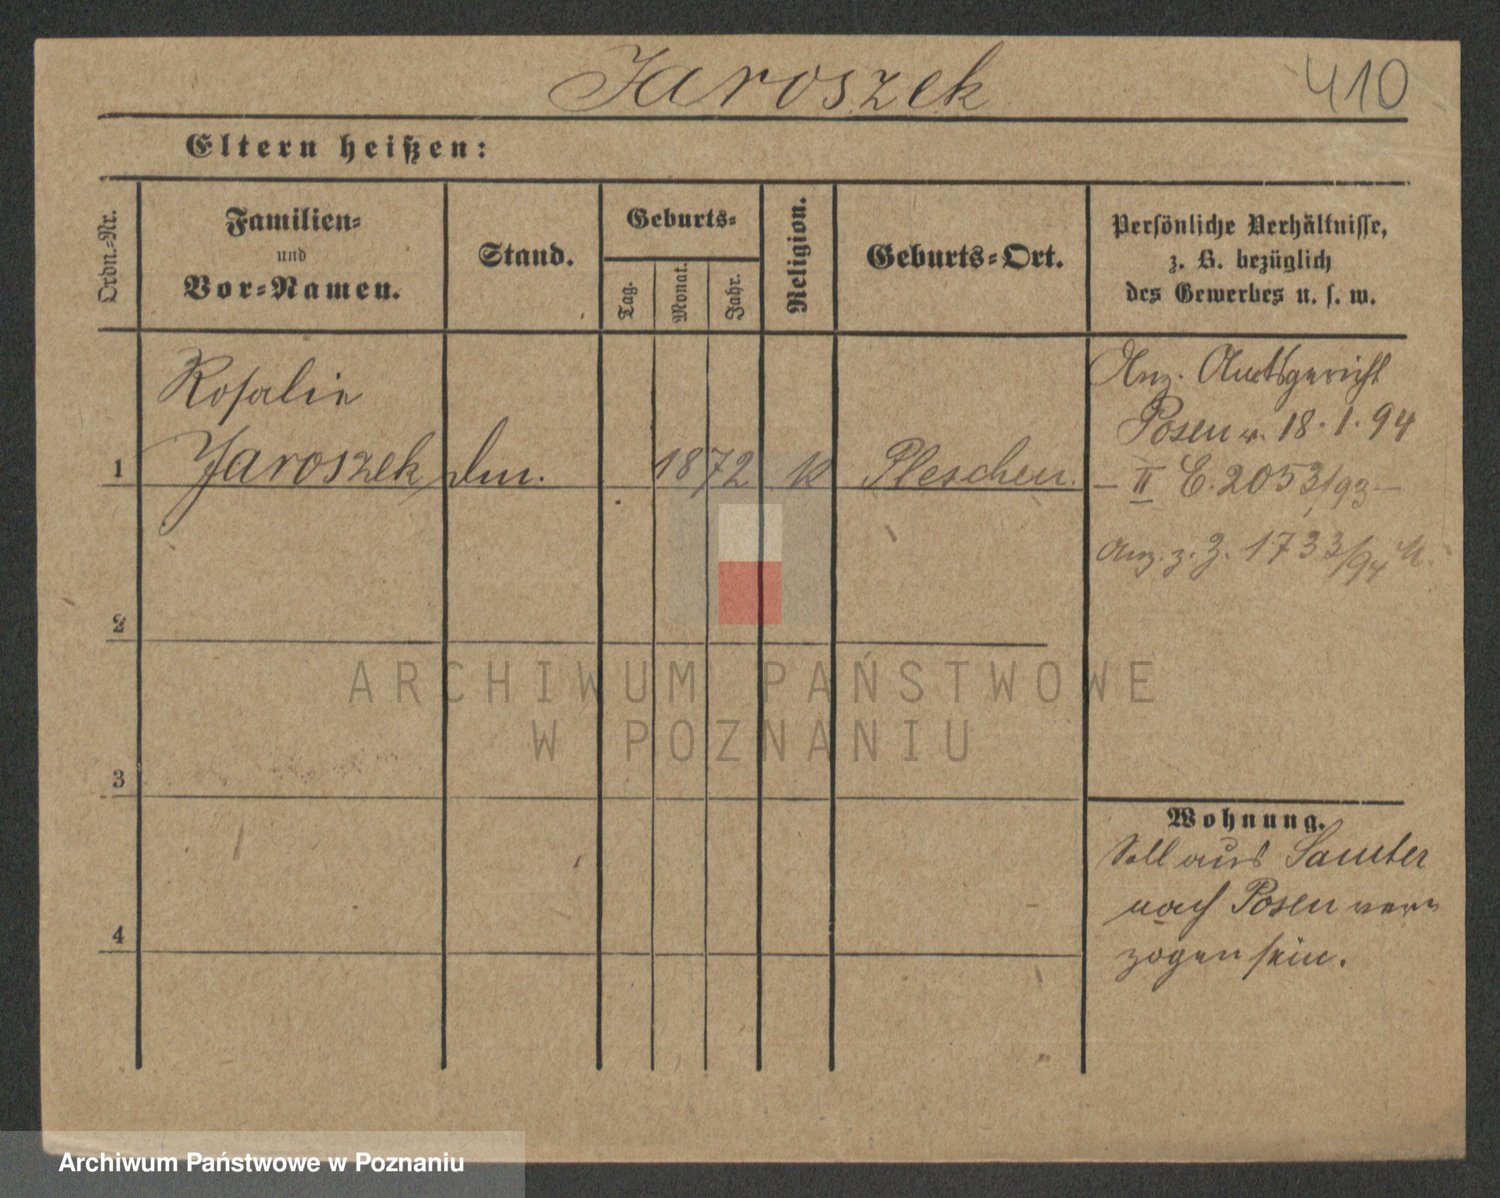 Jaroszek 410
Eltern heißen:
Ordn.-Nr.
Familien-
und
Vor-Namen.
Stand.
Geburts-
Tag.
Monat.
Jahr.
Religion.
Geburts-Ort.
Persönliche Verhältnisse,
z. B. bezüglich
des Gewerbes u. s. w.
Rosalie
1 Jaroszek 1872 k Pleschen.
Anz. Amtsgericht
Posen v. 18.1.94
- II E. 2053/93 -
Anz. z. J. 1733/94
2
3
4
Wohnung.
Soll aus Samter
nach Posen ver-
zogen sein.
ARCHIWUM PAŃSTWOWE
W POZNANIU
Archiwum Państwowe w Poznaniu